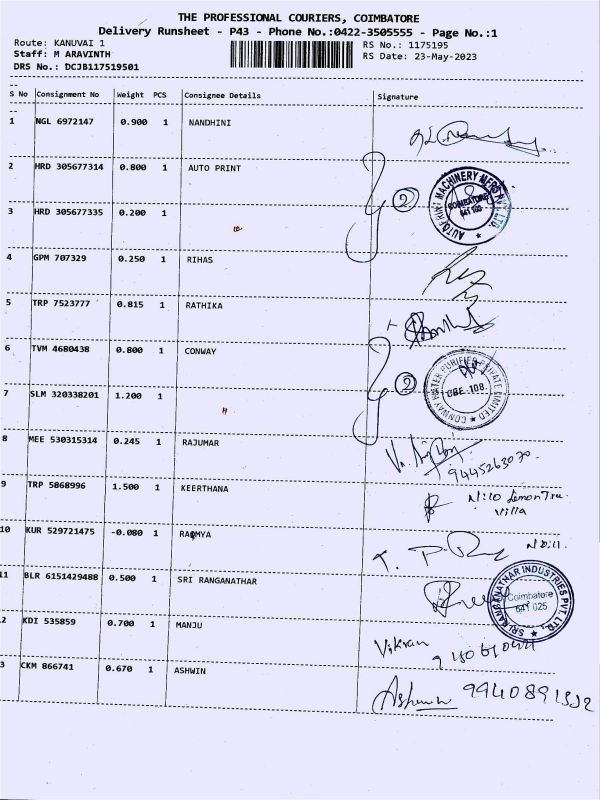 THE PROFESSIONAL COURIERS, COIMBATORE
Delivery Runsheet - P43 - Phone No.:0422-3505555 - Page No.:1
Route: KANUVAI 1 RS No.: 1175195
Staff: M ARAVINTH RS Date: 23-May-2023
DRS No.: DCJB117519501
S No Consignment No Weight PCS Consignee Details Signature
1 NGL 6972147 0.900 1 NANDHINI
2 HRD 305677314 0.800 1 AUTO PRINT
2
AUTOPRINT MACHINERY MFRS PVT. LTD.
COIMBATORE
641 109
3 HRD 305677335 0.200 1
4 GPM 707329 0.250 1 RIHAS
5 TRP 7523777 0.815 1 RATHIKA
6 TVM 4680438 0.800 1 CONWAY
2
CONWAY WATER PURIFIER PRIVATE LIMITED
CBE.108.
7 SLM 320338201 1.200 1 "
8 MEE 530315314 0.245 1 RAJUMAR
9445263030
9 TRP 5868996 1.500 1 KEERTHANA
Villa
10 KUR 529721475 -0.080 1 RAMYA
11 BLR 6151429488 0.500 1 SRI RANGANATHAR
SRI RANGANATHAR INDUSTRIES PVT. LTD.
Coimbatore
641 025
2 KDI 535859 0.700 1 MANJU
Vikram
3 CKM 866741 0.670 1 ASHWIN
Ashwin